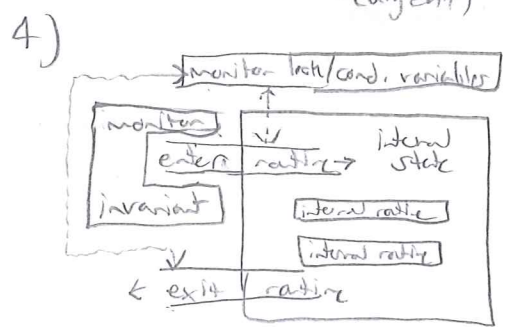 (urgent)
4)
monitor lock/cond. variables
monitor
internal
state
enter routine
invariant
internal routine
internal routine
exit routine